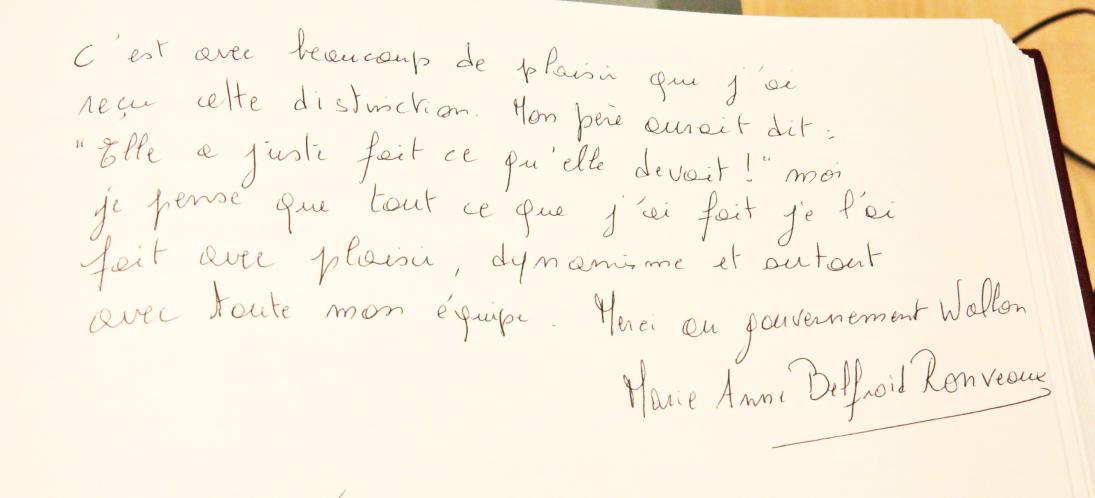 C'est avec beaucoup de plaisir que j'ai
reçu cette distinction. Mon père aurait dit :
"Elle a juste fait ce qu'elle devait !" moi
je pense que tout ce que j'ai fait je l'ai
fait avec plaisir, dynamisme et surtout
avec toute mon équipe. Merci au gouvernement Wallon
Marie Anne Belfroid Ronveaux